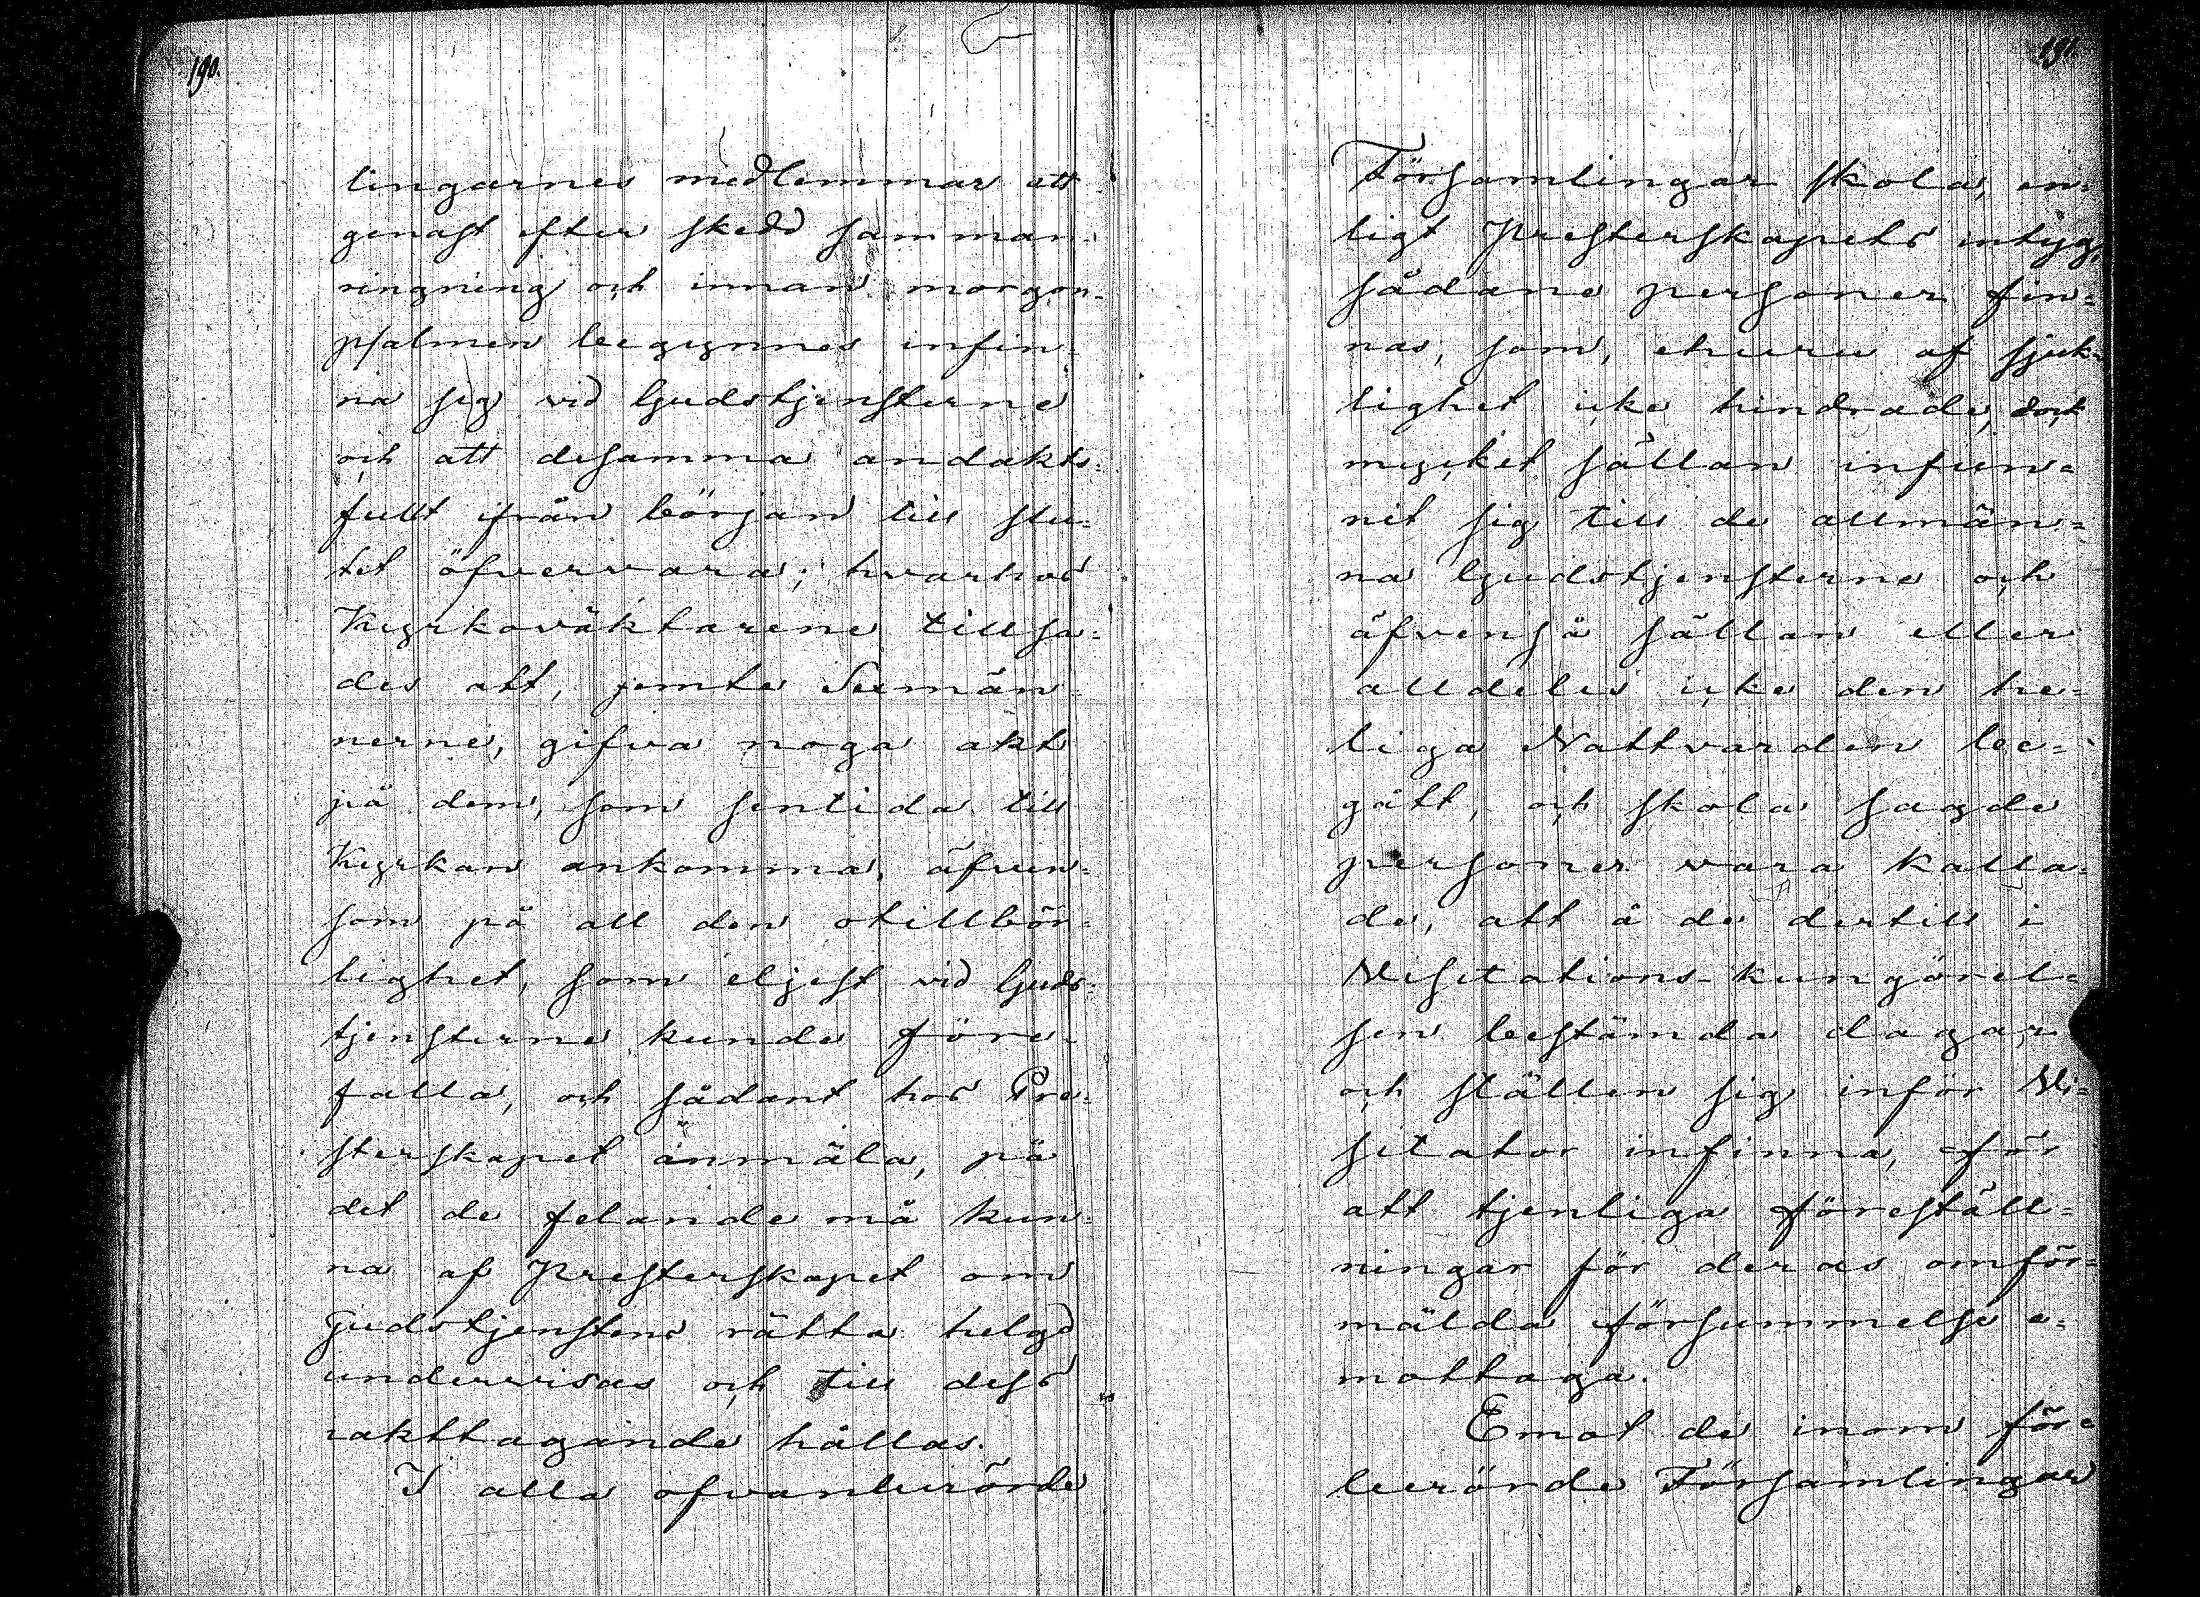 190.
lingarnes medlemmar att
genast efter skedd samman-
ringning och innan morgon-
psalmen begynnes infin-
na sig vid Gudstjensterne
och att desamma andakts-
fullt ifrån början till slu-
tet öfvervara; hvarhos
Kyrkoväktarene tillsa-
des att, jemte Sexmän-
nerne, gifva noga akt
på dem, som sentida till
Kyrkan ankomma, äfven-
som på all den otillbör-
lighet, som eljest vid Guds-
tjensterne kunde före-
falla, och sådant hos Pre-
sterskapet anmäla, på
det de felande må kun-
na af Presterskapet om
Gudstjenstens rätta helgd
undervisas och till dess
iakttagande hållas.
I alla ofvanberörde
191.
Församlingar skola, en-
ligt Presterskapets intyg,
sådane personer fin-
nas, som, ehuru af sjuk-
lighet icke hindrade, dock
mycket sällan infun-
nit sig till de allmän-
na Gudstjensterne och
äfvenså sällan eller
alldeles icke den he-
liga Nattvarden be-
gått, och skola sagde
personer vara kalla-
de, att å de dertill i
Visitations-kungörel-
sen bestämda dagar
och ställen sig inför Vi-
sitator infinna, för
att tjenliga föreställ-
ningar för deras omför-
mälda försummelse e-
mottaga.
Emot de inom för-
berörde Församlingar